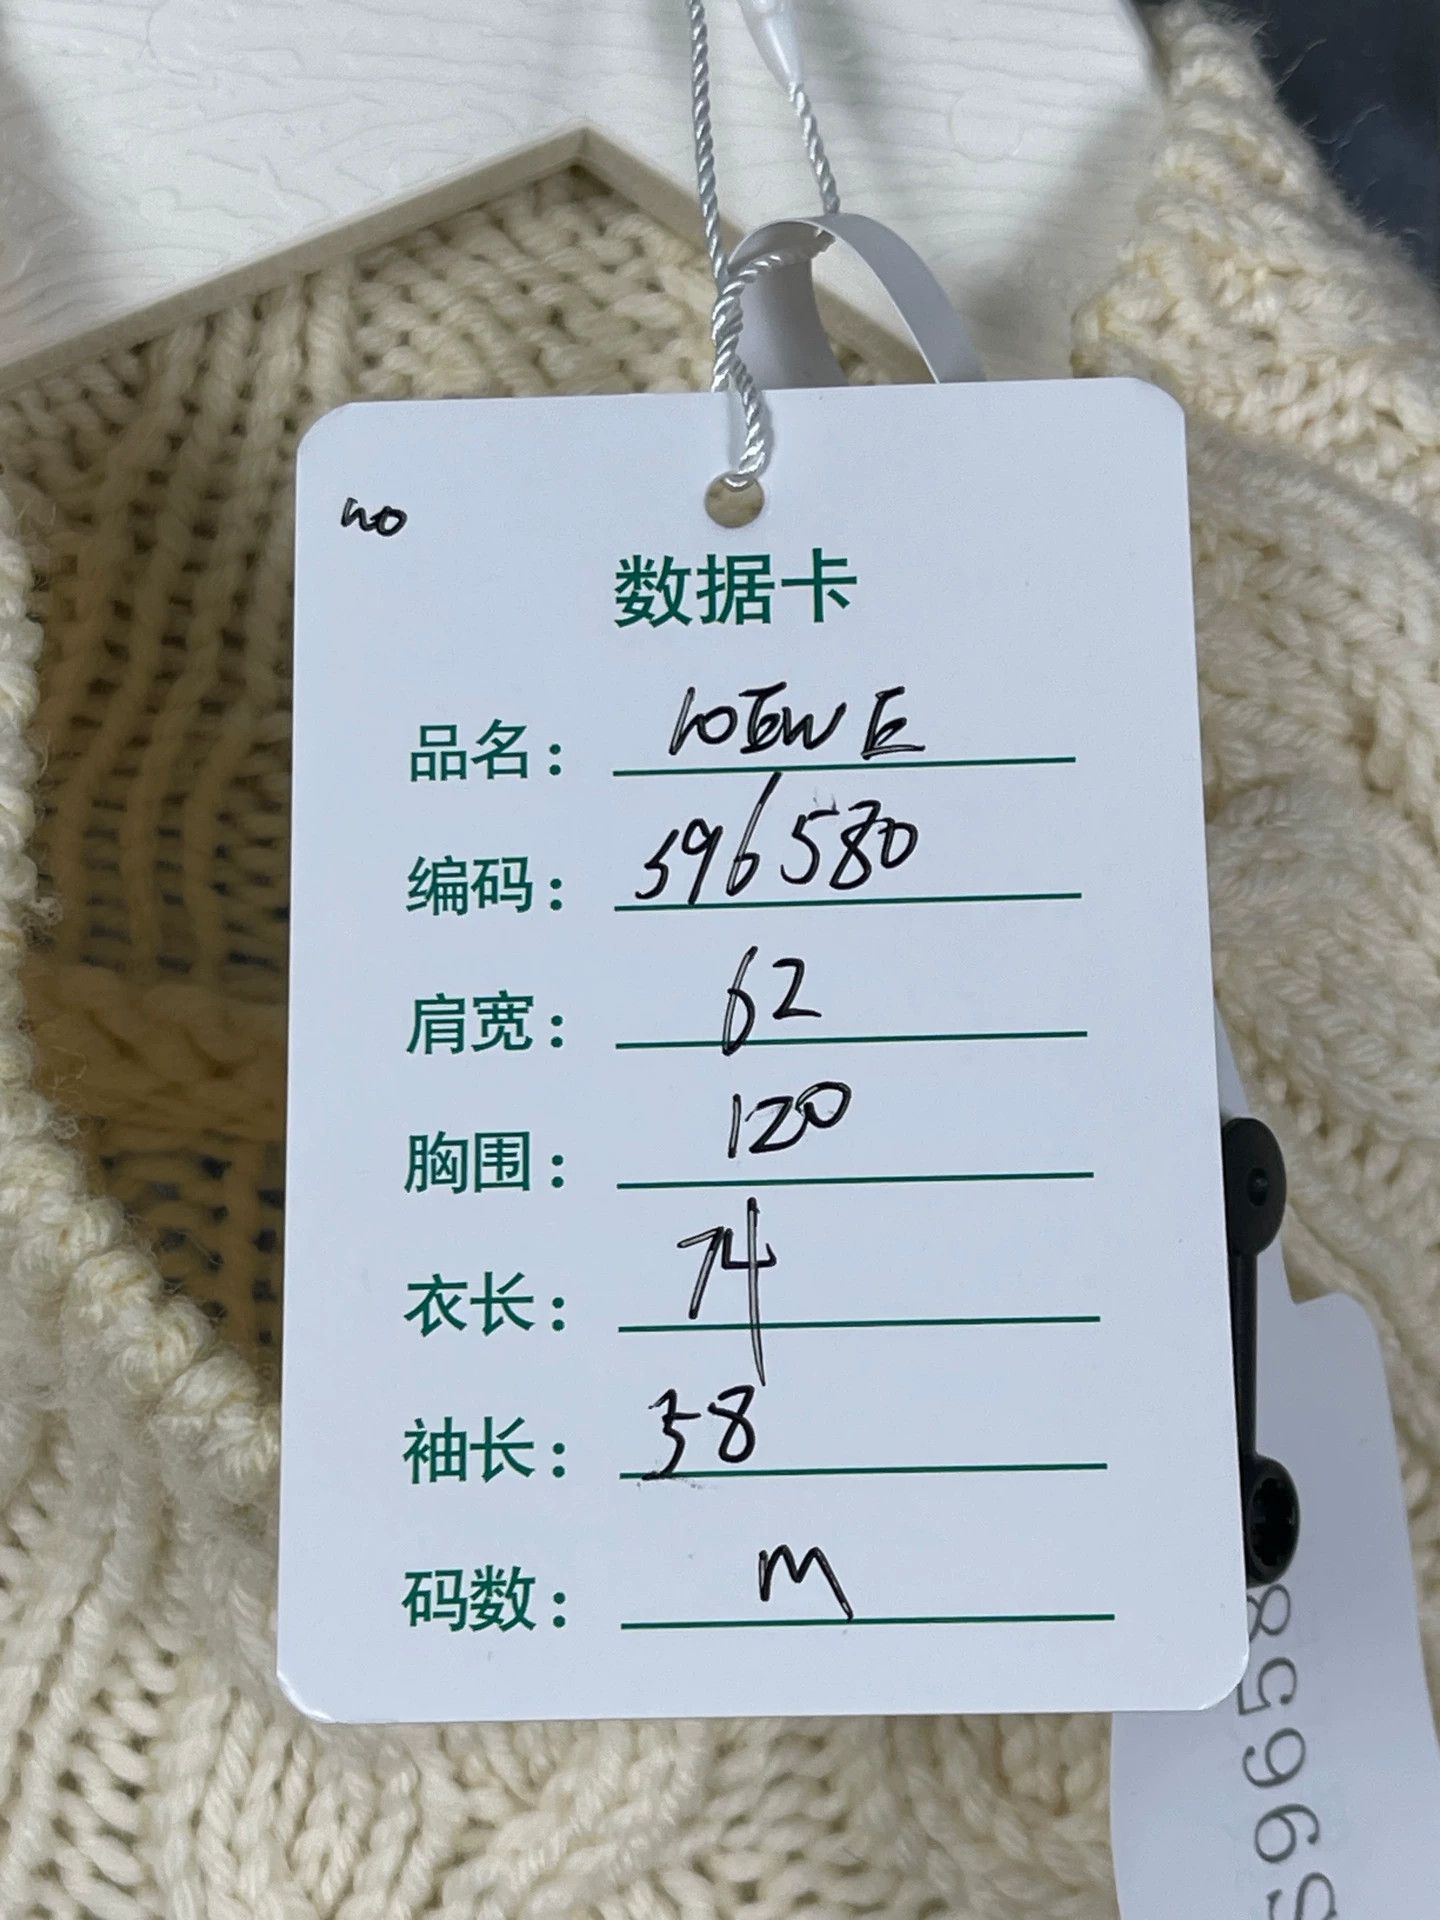 no
数据卡
品名： LOEWE
编码： 596580
肩宽： 62
胸围： 120
衣长： 74
袖长： 58
码数： M
S96658